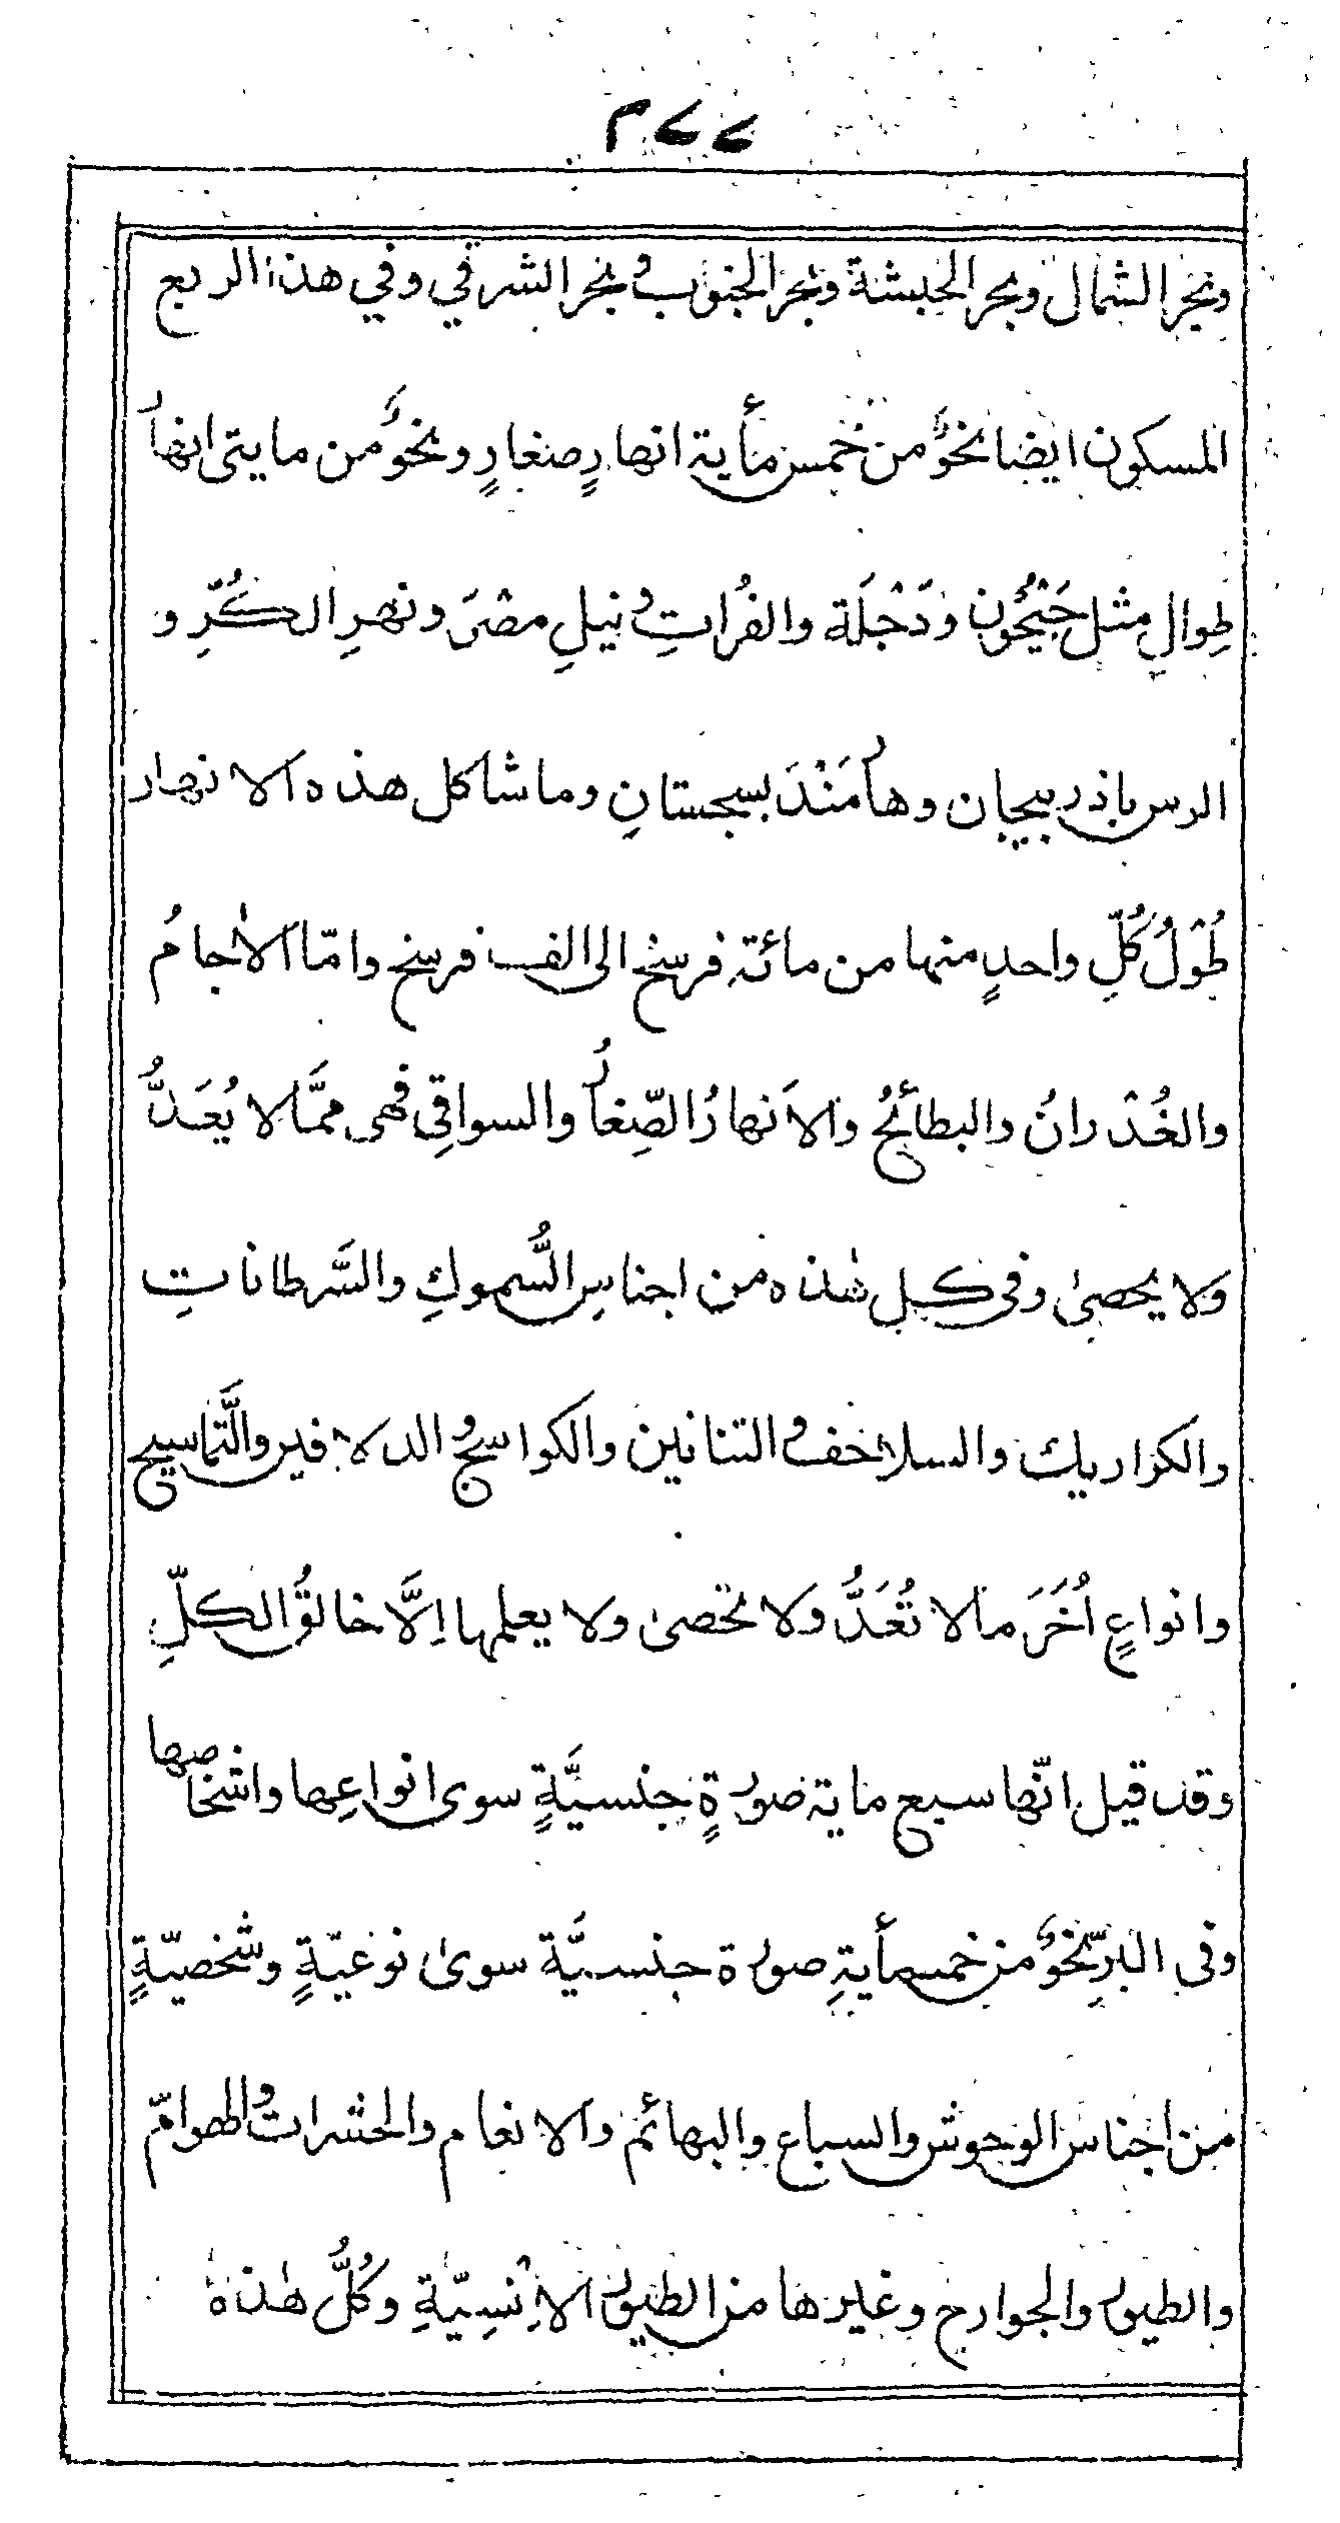 م٧٧
وبحر الشمال وبحر الحبشة وبحر الجنوب وبحر الشرقي وفي هذا الربع
المسكون ايضا نحوٌ من خمس مأية انهارٍ صغارٍ ونحوٌ من مايتى انهار
طِوالِ مثل جَيْحُون ودَجْلَة والفُراتِ ونيلِ مصْرَ ونهرِ الكُرِّ و
الرس باذربيجان وهامَنْدَ بسجستانِ وما شاكل هذه الانهار
طُوْلُ كُلِّ واحدٍ منها من مائة فرسخ الى الف فرسخ وامّا الاٰجامُ
والغُدْرانُ والبطائحُ والاَنهارُ الصِّغارُ والسواقِي فهى ممَّا لا يُعَدُّ
ولا يحصىٰ وفى كل هٰذه من اجناسِ السُّموكِ والسَّرطاناتِ
والكزاريك والسلاحف والتنانين والكواسجُ والدلافين والتَّماسيح
وانواعٍ اُخَرَ مالا تُعَدُّ ولا تحصىٰ ولا يعلمها اِلَّا خالقُ الكلِّ
وقد قيل انّها سبع ماية صورةٍ جنسيَّةٍ سوى انواعِها واشخاصها
وفى البرِّ نحوٌ من خمسمأيةِ صورة جنسيَّة سوىٰ نوعيّةٍ وشخصيّةٍ
من اجناس الوحوش والسباع والبهائم والانعام والحشرات والهوامّ
والطيور والجوارح وغيرها من الطيور الاِنْسِيّةِ وكُلُّ هٰذهٖ